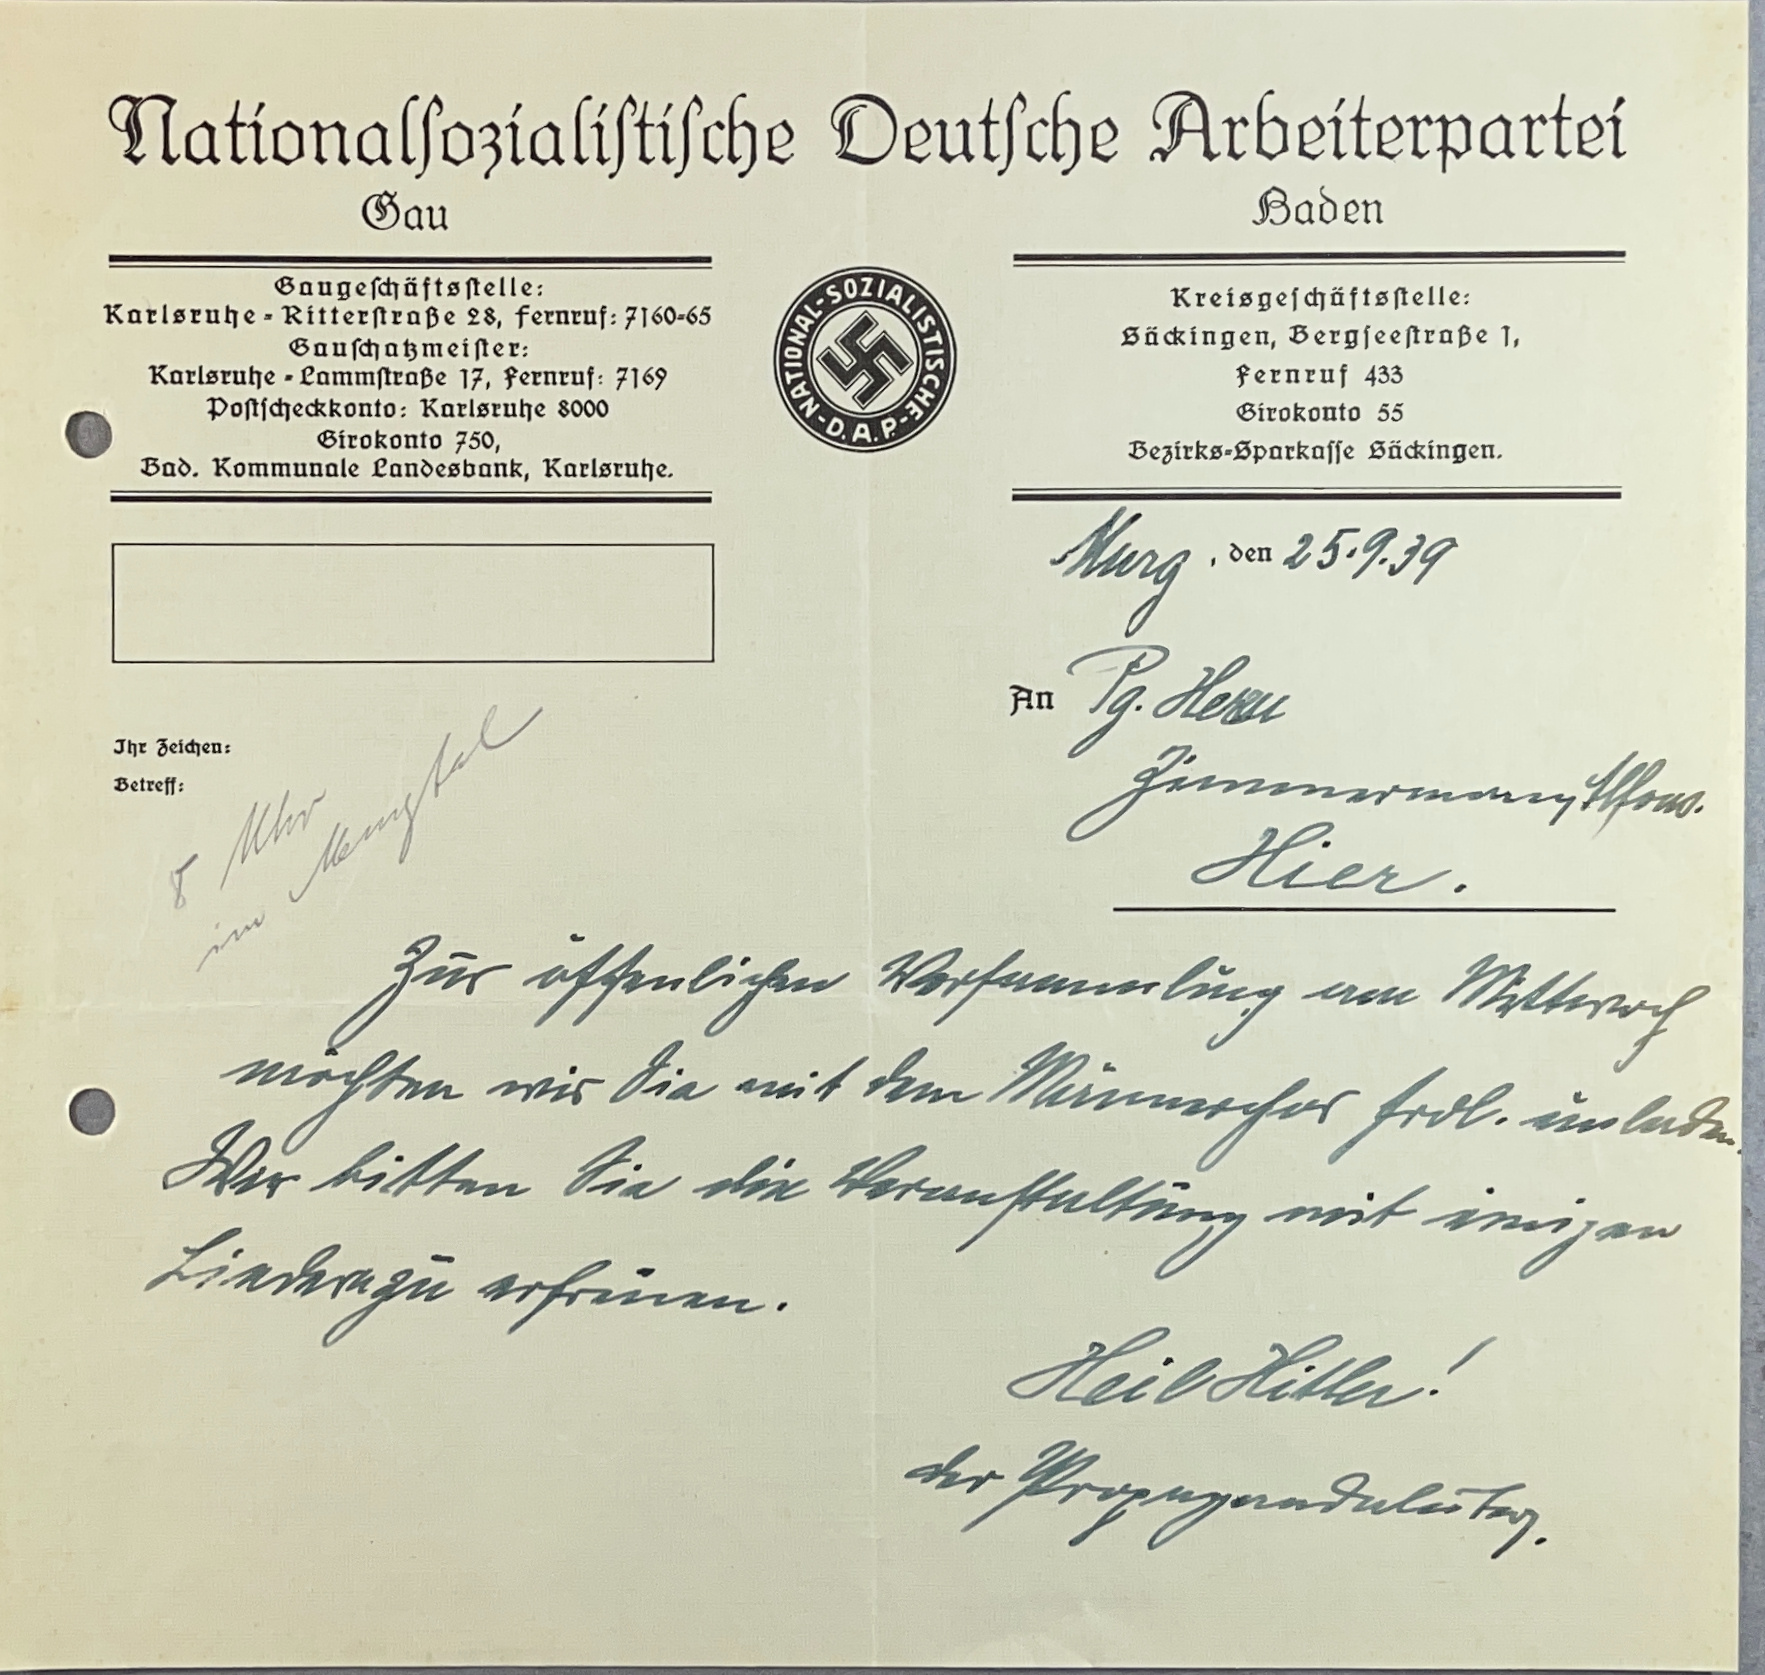 Nationalsozialistische Deutsche Arbeiterpartei
Gau Baden
Gaugeschäftsstelle:
Karlsruhe - Ritterstraße 28, Fernruf: 7160-65
Gauschatzmeister:
Karlsruhe - Lammstraße 17, Fernruf: 7169
Postscheckkonto: Karlsruhe 8000
Girokonto 750,
Bad. Kommunale Landesbank, Karlsruhe.
NATIONAL-SOZIALISTISCHE-D.A.P.-
Kreisgeschäftsstelle:
Säckingen, Bergseestraße 1,
Fernruf 433
Girokonto 55
Bezirks-Sparkasse Säckingen.
Murg, den 25.9.39
An Pg. Herrn
Zimmermann Alfons.
Hier.
Ihr Zeichen:
Betreff:
8 Uhr
im Murgtal
Zur öffenlichen Versammlung am Mittwoch
möchten wir Sie mit dem Männerchor frdl. einladen.
Wir bitten Sie die Veranstaltung mit einigen
Liedern zu erfreuen.
Heil Hitler!
der Propagandaleiter.